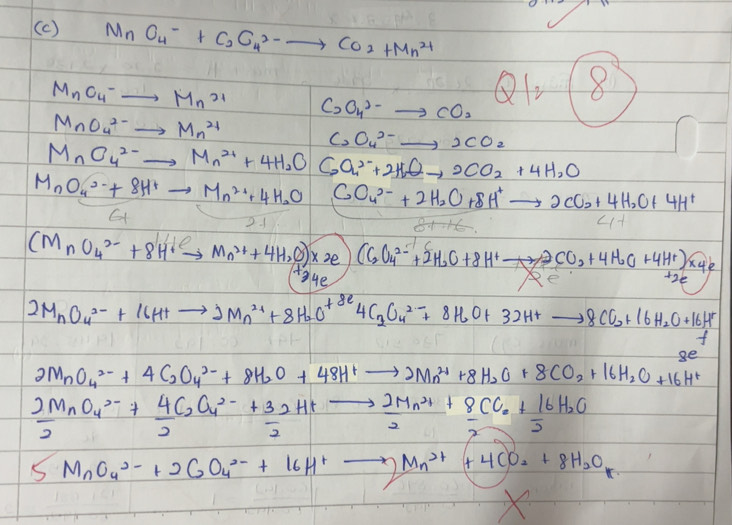 (c) MnO₄⁻ + C₂O₄²⁻ ⟶ CO₂ + Mn²⁺
Q1 = 8
MnO₄⁻ ⟶ Mn²⁺ C₂O₄²⁻ ⟶ CO₂
MnO₄²⁻ ⟶ Mn²⁺ C₂O₄²⁻ ⟶ 2CO₂
MnO₄²⁻ ⟶ Mn²⁺ + 4H₂O C₂O₄²⁻ + 2H₂O → 2CO₂ + 4H₂O
MnO₄²⁻ + 8H⁺ → Mn²⁺ + 4H₂O C₂O₄²⁻ + 2H₂O + 8H⁺ ⟶ 2CO₂ + 4H₂O + 4H⁺
6+ 2+ 8+ 4+
(MnO₄²⁻ + 8H⁺ → Mn²⁺ + 4H₂O) × 2e (C₂O₄²⁻ + 2H₂O + 8H⁺ ⟶ 2CO₂ + 4H₂O + 4H⁺) × 4e
+4e +2e
2MnO₄²⁻ + 16H⁺ ⟶ 2Mn²⁺ + 8H₂O + 8e 4C₂O₄²⁻ + 8H₂O + 32H⁺ ⟶ 8CO₂ + 16H₂O + 16H⁺
+
8e
2MnO₄²⁻ + 4C₂O₄²⁻ + 8H₂O + 48H⁺ ⟶ 2Mn²⁺ + 8H₂O + 8CO₂ + 16H₂O + 16H⁺
2MnO₄²⁻ + 4C₂O₄²⁻ + 32H⁺ ⟶ 2Mn²⁺ + 8CO₂ + 16H₂O
2 2 2 2 2 2
5 MnO₄²⁻ + 2C₂O₄²⁻ + 16H⁺ ⟶ 2 Mn²⁺ + 4CO₂ + 8H₂O